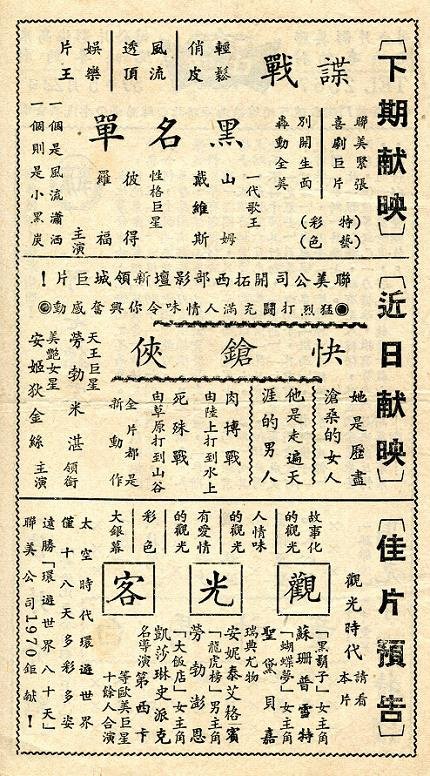 〔下期献映〕
聯美緊張
喜劇巨片
(特藝)
(彩色)
別開生面
轟動全美
諜戰
輕鬆
俏皮
風流
透頂
娛樂
片王
黑名單
一代歌王
山姆
戴維斯
性格巨星
彼得
羅福
主演
一個是風流瀟洒
一個則是小黑炭
〔近日献映〕
聯美公司開拓西部影壇新領城巨片！
◉猛烈打鬪充滿人情味令你興奮感動◎
快鎗俠
她是歷盡
滄桑的女人
他是走遍天
涯的男人
肉博戰
由陸上打到水上
死殊戰
由草原打到山谷
全片都是
新動作
天王巨星
勞勃米湛領銜
美艷女星
安姬狄金絲主演
〔佳片預告〕
觀光時代
請看
本片
故事化
的觀光
人情味
的觀光
有愛情
的觀光
彩色
大銀幕
觀光客
「黑鬍子」女主角
蘇珊普雪特
「蝴蝶夢」女主角
聖黛貝嘉
瑞典尤物
安妮泰艾格賓
「龍虎榜」男主角
勞勃澎恩
「大飯店」女主角
凱莎琳史派克
名導演第西卡
等歐美巨星
十餘人合演
太空時代環遊世界
僅十八天多彩多姿
遠勝「環遊世界八十天」
聯美公司1970鉅献！